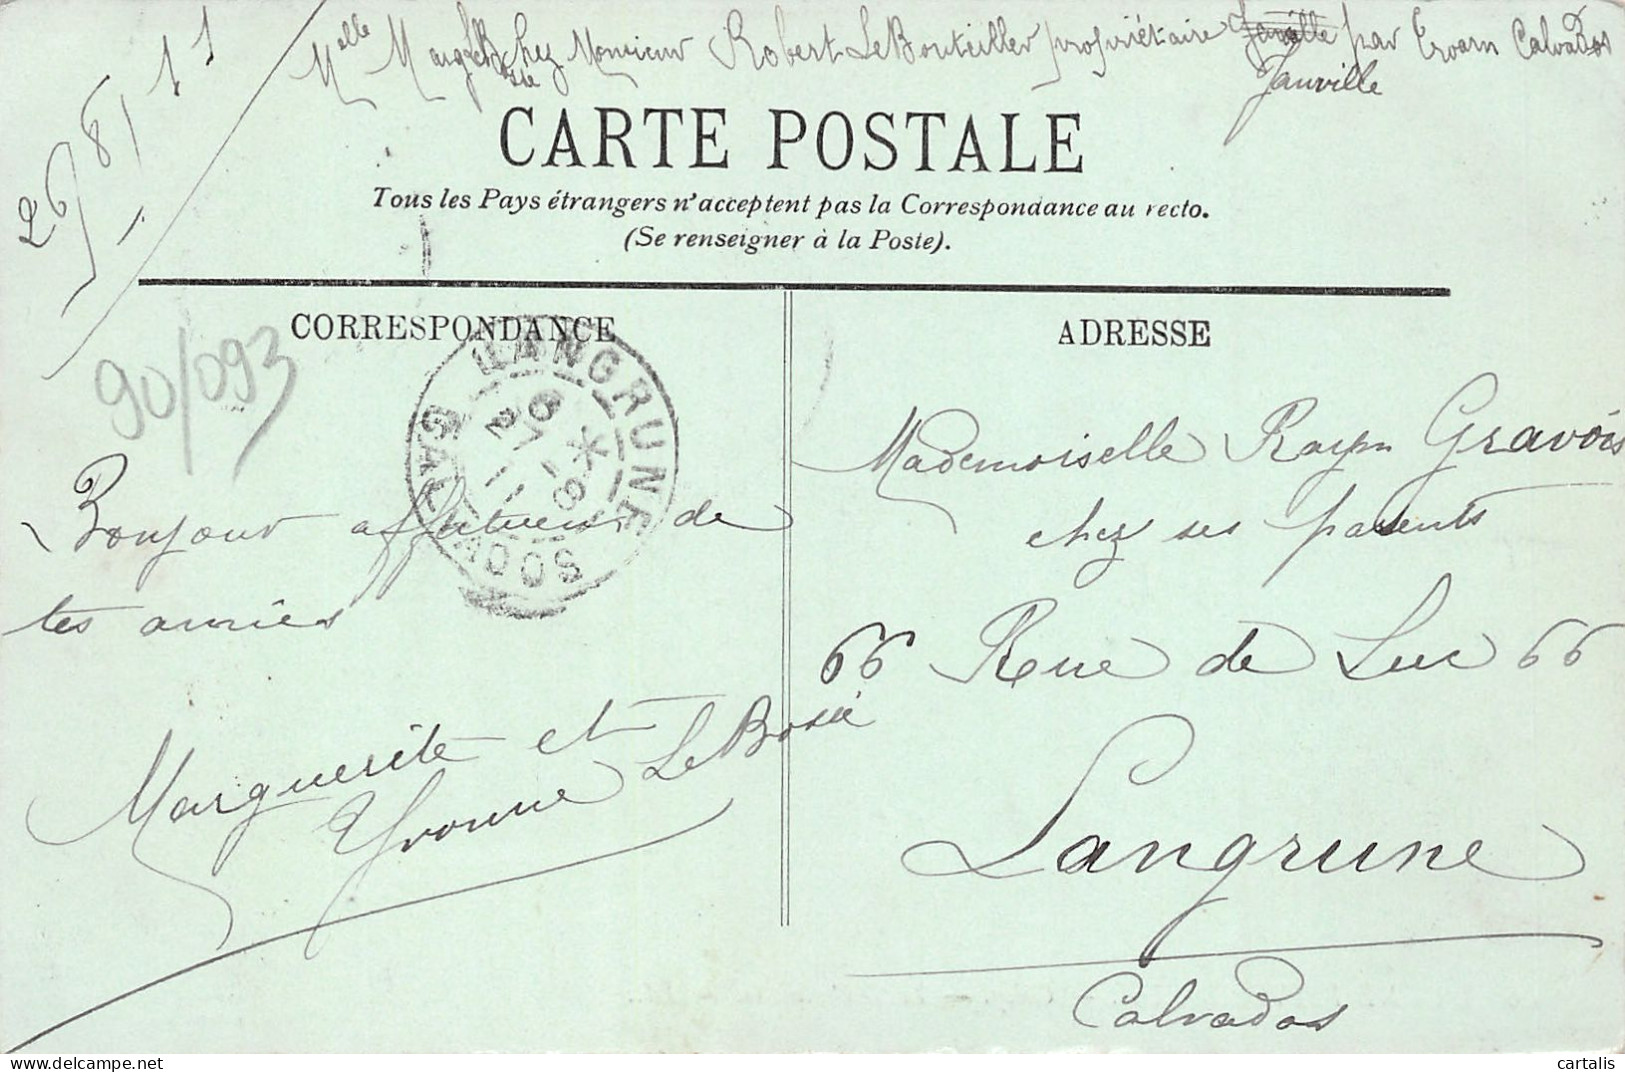 26/8/11
Melle Marg LeBosie chez Monsieur Robert LeBouteiller propriétaire Janville par Troarn Calvados
Janville
CARTE POSTALE
Tous les Pays étrangers n'acceptent pas la Correspondance au recto.
(Se renseigner à la Poste).
CORRESPONDANCE
ADRESSE
90/093
LANGRUNE
CALVADOS
Bonjour affectueux de
tes amies
Marguerite et
Yvonne LeBosie
Mademoiselle Raym Gravois
chez ses parents
66 Rue de Luc 66
Langrune
Calvados
cartalis